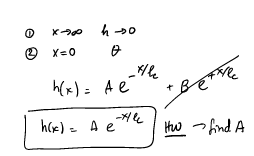 ① x→∞ h→0
② x=0 θ
h(x) = A e^{-x/ℓc} + B e^{+x/ℓc}
h(x) = A e^{-x/ℓc} HW → find A